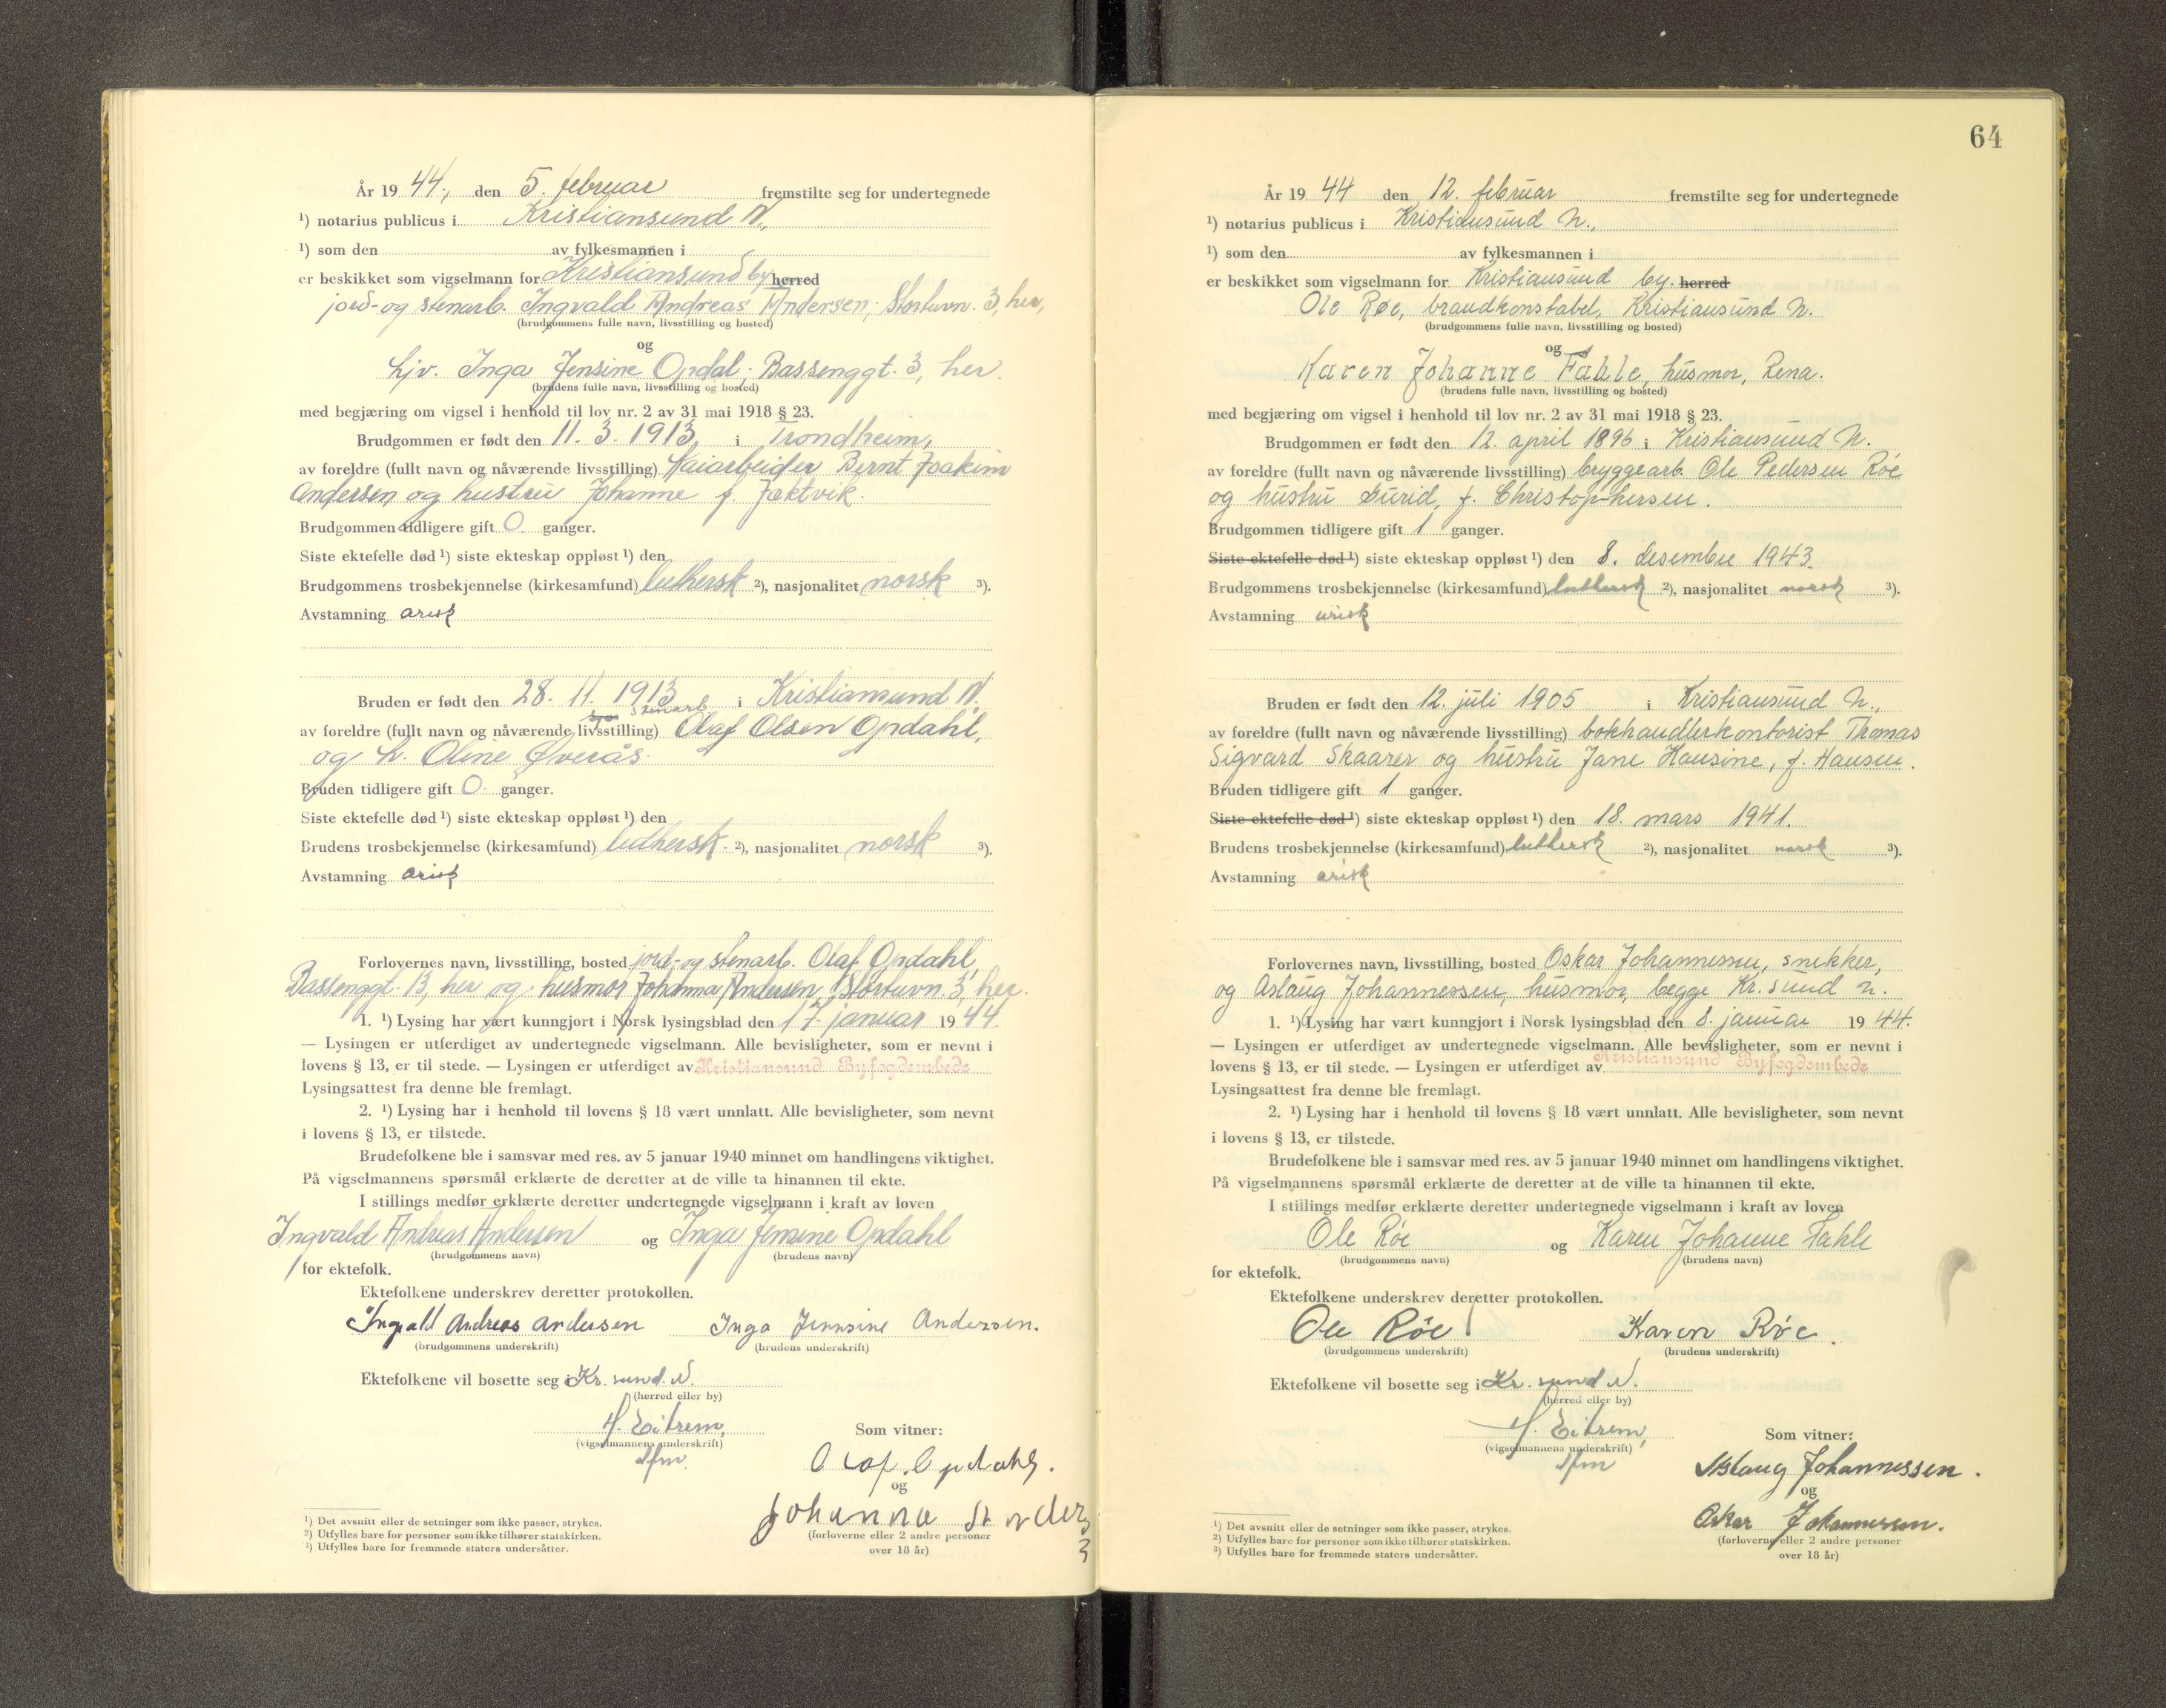 År 19 44, den 5. februar fremstilte seg for undertegnede
¹) notarius publicus i Kristiansund N.,
¹) som den av fylkesmannen i
er beskikket som vigselmann for Kristiansund by herred
jord- og stenarb. Ingvald Andreas Andersen; Stortuvn. 3, her,
(brudgommens fulle navn, livsstilling og bosted)
og
hjv. Inga Jensine Opdal; Bassenggt. 3, her.
(brudens fulle navn, livsstilling og bosted)
med begjæring om vigsel i henhold til lov nr. 2 av 31 mai 1918 § 23.
Brudgommen er født den 11. 3. 1913, i Trondheim,
av foreldre (fullt navn og nåværende livsstilling) Kaiarbeider Bernt Joakim
Andersen og hustru Johanne f. Jektvik.
Brudgommen tidligere gift 0 ganger.
Siste ektefelle død ¹) siste ekteskap oppløst ¹) den
Brudgommens trosbekjennelse (kirkesamfund) luthersk ²), nasjonalitet norsk ³).
Avstamning arisk
Bruden er født den 28. 11. 1913 i Kristiansund N.
stenarb
av foreldre (fullt navn og nåværende livsstilling) Olaf Olsen Opdahl,
og h. Oline Øverås.
Bruden tidligere gift 0. ganger.
Siste ektefelle død ¹) siste ekteskap oppløst ¹) den
Brudens trosbekjennelse (kirkesamfund) luthersk - ²), nasjonalitet norsk ³).
Avstamning arisk
Forlovernes navn, livsstilling, bosted jord- og stenarb. Olaf Opdahl,
Bassenggt. 13, her og husmor Johanna Andersen, Stortuvn. 3, her.
1. ¹) Lysing har vært kunngjort i Norsk lysingsblad den 17. januar 19 44.
— Lysingen er utferdiget av undertegnede vigselmann. Alle bevisligheter, som er nevnt i
lovens § 13, er til stede. — Lysingen er utferdiget av Kristiansund Byfogdembede
Lysingsattest fra denne ble fremlagt.
2. ¹) Lysing har i henhold til lovens § 18 vært unnlatt. Alle bevisligheter, som nevnt
i lovens § 13, er tilstede.
Brudefolkene ble i samsvar med res. av 5 januar 1940 minnet om handlingens viktighet.
På vigselmannens spørsmål erklærte de deretter at de ville ta hinannen til ekte.
I stillings medfør erklærte deretter undertegnede vigselmann i kraft av loven
Ingvald Andreas Andersen og Inga Jensine Opdahl
(brudgommens navn) (brudens navn)
for ektefolk.
Ektefolkene underskrev deretter protokollen.
Ingvald Andreas Andersen Inga Jennsine Andersen.
(brudgommens underskrift) (brudens underskrift)
Ektefolkene vil bosette seg i Kr. sund. N.
(herred eller by)
H. Eitrem,
(vigselmannens underskrift)
Som vitner:
Olaf. Opdahl.
og
Johanna Anders
(forloverne eller 2 andre personer
over 18 år)
¹) Det avsnitt eller de setninger som ikke passer, strykes.
²) Utfylles bare for personer som ikke tilhører statskirken.
³) Utfylles bare for fremmede staters undersåtter.
64
År 19 44 den 12. februar fremstilte seg for undertegnede
¹) notarius publicus i Kristiansund N.,
¹) som den av fylkesmannen i
er beskikket som vigselmann for Kristiansund by. herred
Ole Røe, brandkonstabel, Kristiansund N.
(brudgommens fulle navn, livsstilling og bosted)
og
Karen Johanne Fahle, husmor, Rena.
(brudens fulle navn, livsstilling og bosted)
med begjæring om vigsel i henhold til lov nr. 2 av 31 mai 1918 § 23.
Brudgommen er født den 12. april 1896 i Kristiansund N.
av foreldre (fullt navn og nåværende livsstilling) bryggearb. Ole Pedersen Røe
og hustru Gurid, f. Christophersen.
Brudgommen tidligere gift 1 ganger.
Siste ektefelle død ¹) siste ekteskap oppløst ¹) den 8. desember 1943.
Brudgommens trosbekjennelse (kirkesamfund) luthersk ²), nasjonalitet norsk ³).
Avstamning arisk
Bruden er født den 12. juli 1905 i Kristiansund N.,
av foreldre (fullt navn og nåværende livsstilling) bokhandlerkontorist Thomas
Sigvard Skaarer og hustru Jane Hansine, f. Hansen.
Bruden tidligere gift 1 ganger.
Siste ektefelle død ¹) siste ekteskap oppløst ¹) den 18. mars 1941.
Brudens trosbekjennelse (kirkesamfund) luthersk ²), nasjonalitet norsk ³).
Avstamning arisk
Forlovernes navn, livsstilling, bosted Oskar Johannessen, snekker,
og Aslaug Johannessen, husmor, begge Kr. sund N.
1. ¹) Lysing har vært kunngjort i Norsk lysingsblad den 8. januar 19 44.
— Lysingen er utferdiget av undertegnede vigselmann. Alle bevisligheter, som er nevnt i
lovens § 13, er til stede. — Lysingen er utferdiget av Kristiansund Byfogdembede
Lysingsattest fra denne ble fremlagt.
2. ¹) Lysing har i henhold til lovens § 18 vært unnlatt. Alle bevisligheter, som nevnt
i lovens § 13, er tilstede.
Brudefolkene ble i samsvar med res. av 5 januar 1940 minnet om handlingens viktighet.
På vigselmannens spørsmål erklærte de deretter at de ville ta hinannen til ekte.
I stillings medfør erklærte deretter undertegnede vigselmann i kraft av loven
Ole Røe og Karen Johanne Fahle
(brudgommens navn) (brudens navn)
for ektefolk.
Ektefolkene underskrev deretter protokollen.
Ole Røe Karen Røe.
(brudgommens underskrift) (brudens underskrift)
Ektefolkene vil bosette seg i Kr. sund N.
(herred eller by)
H. Eitrem,
(vigselmannens underskrift)
Som vitner:
Aslaug Johannessen.
og
Oskar Johannessen.
(forloverne eller 2 andre personer
over 18 år)
¹) Det avsnitt eller de setninger som ikke passer, strykes.
²) Utfylles bare for personer som ikke tilhører statskirken.
³) Utfylles bare for fremmede staters undersåtter.